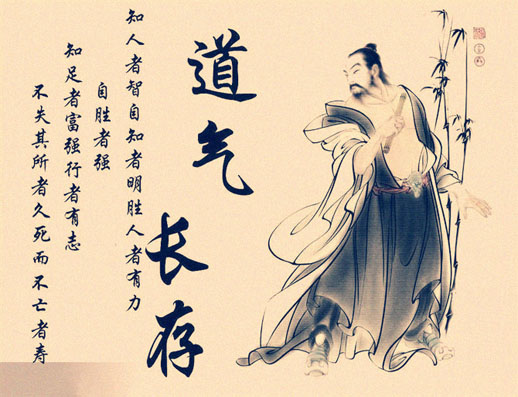 道气
长存
知人者智自知者明胜人者有力
自胜者强
知足者富强行者有志
不失其所者久死而不亡者寿